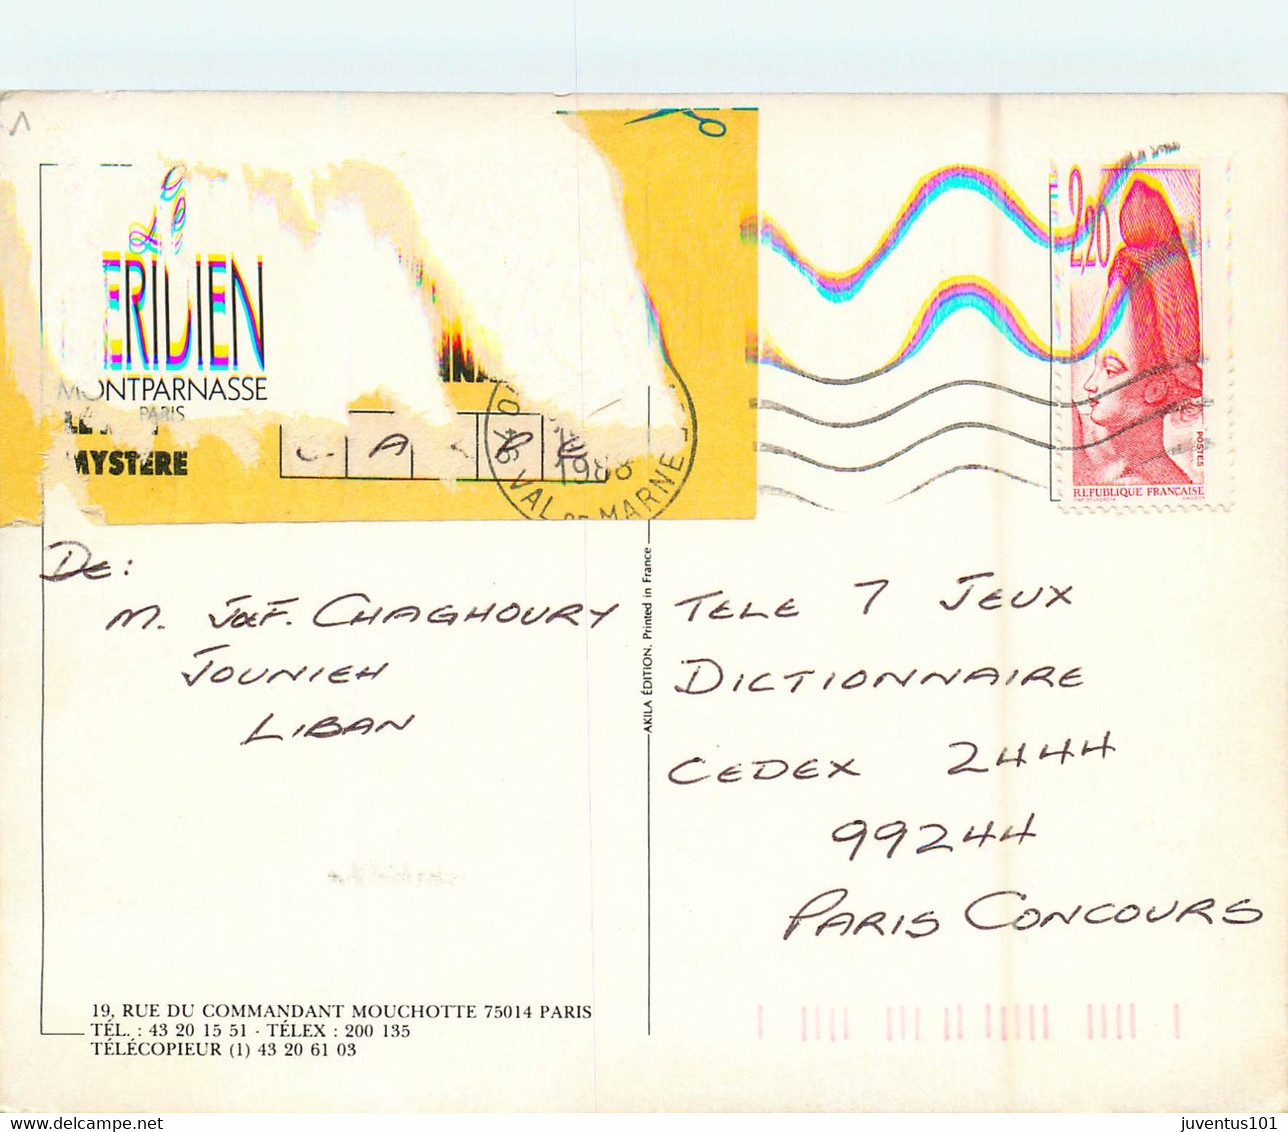 Le
MERIDIEN
MONTPARNASSE
PARIS
MYSTÈRE
C A
1988
VAL DE MARNE
2,20
POSTES
REPUBLIQUE FRANÇAISE
DE:
M. JOEF. CHAGHOURY
JOUNIEH
LIBAN
AKILA ÉDITION. Printed in France
TELE 7 JEUX
DICTIONNAIRE
CEDEX 2444
99244
PARIS CONCOURS
19, RUE DU COMMANDANT MOUCHOTTE 75014 PARIS
TÉL. : 43 20 15 51 - TÉLEX : 200 135
TÉLÉCOPIEUR (1) 43 20 61 03
juventus101